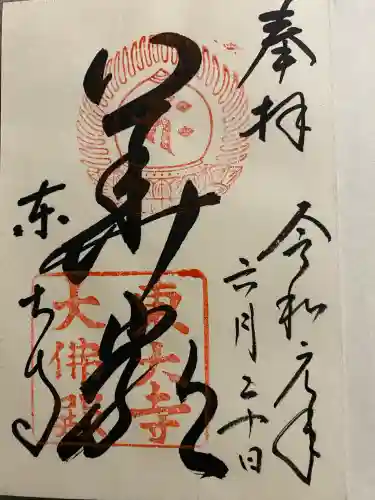 奉拝
令和元年
六月二十日
華嚴
東大寺
東大寺
大佛殿